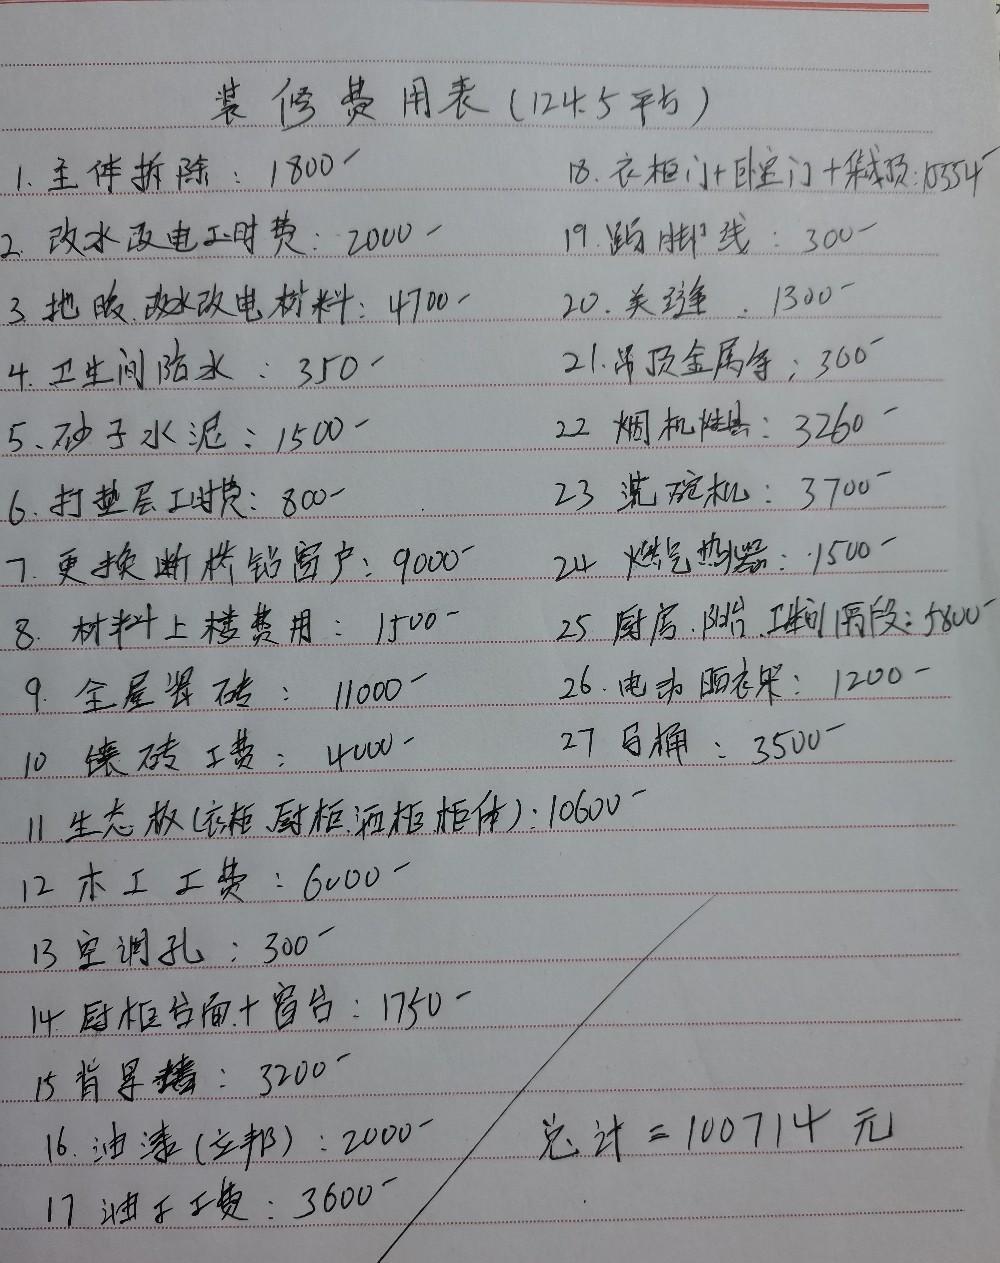 装修费用表(124.5平方)
1. 主体拆除：1800-
2. 改水改电工时费：2000-
3. 地暖.改水改电材料：4700-
4. 卫生间防水：350-
5、砂子水泥：1500-
6. 打垫层工时费：800-
7. 更换断桥铝窗户：9000-
8. 材料上楼费用：1500-
9. 全屋瓷砖：11000-
10 镶砖工费：4000-
11 生态板(衣柜.厨柜.酒柜柜体)：10600-
12 木工工费：6000-
13 空调孔：300-
14 厨柜台面+窗台：1750-
15 背景墙：3200-
16. 油漆(立邦)：2000-
17 油工工费：3600-
18. 衣柜门+卧室门+集成顶：15354-
19. 踢脚线：300-
20. 美缝：1300-
21. 吊顶金属等：300-
22 烟机灶具：3260-
23 洗碗机：3700-
24 燃气热器：1500-
25 厨房.阳台.卫生间隔段：5800-
26. 电动晒衣架：1200-
27 马桶：3500-
总计=100714元